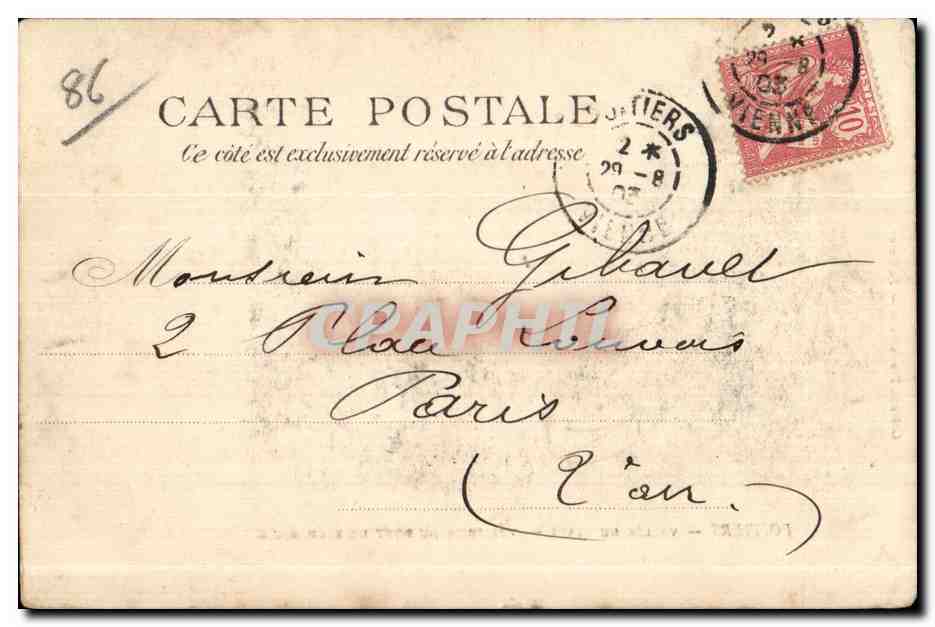 86
CARTE POSTALE
Ce côté est exclusivement réservé à l'adresse
POITIERS
2 *
29 - 8
03
VIENNE
2 *
29 - 8
03
VIENNE
10
Monsieur Gibault
2 Place Louvois
Paris
CPAPHIL